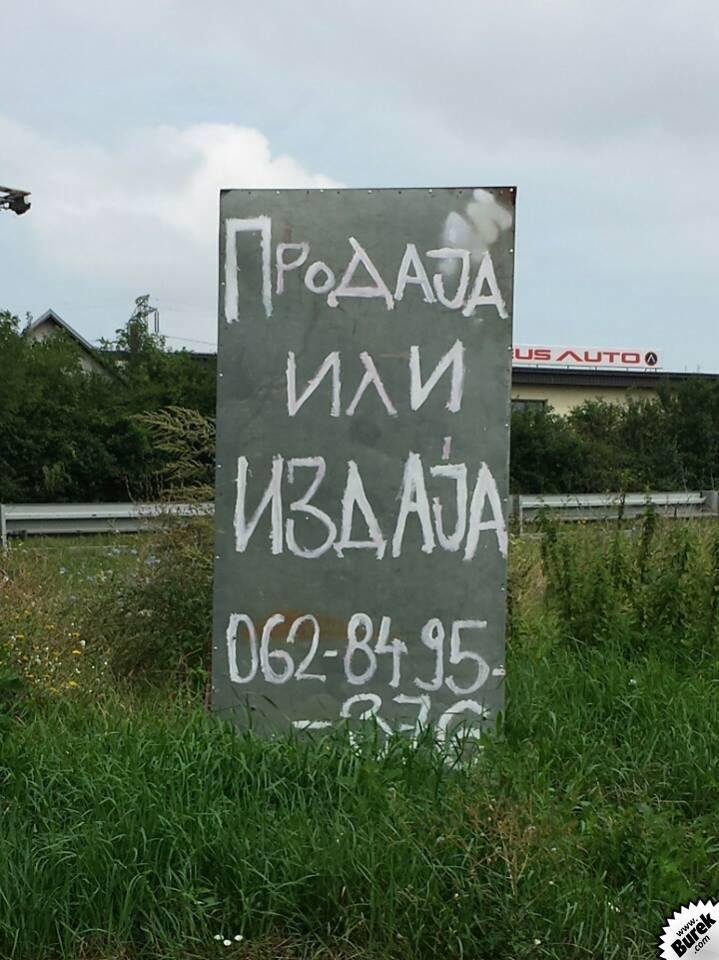 ПРОДАЈА
ИЛИ
ИЗДАЈА
062-8495-
US AUTO
www.
Burek
.com